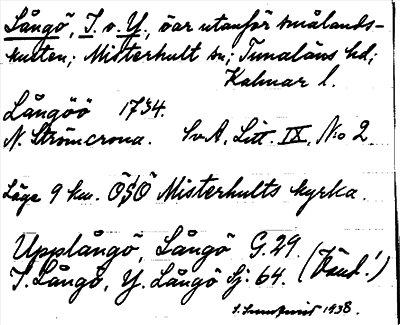 Långö, I. o. Y., öar utanför smålands-
kusten; Misterhult sn; Tunaläns hd;
Kalmar l.
Långöö 1734.
N. Strömcrona. SvA. Litt. IX, No 2.
Läge 9 km. ÖSÖ Misterhults kyrka.
Upplångö, Långö G. 29.
I. Långö, Y. Långö Sj. 64. (Öand!)
1938.